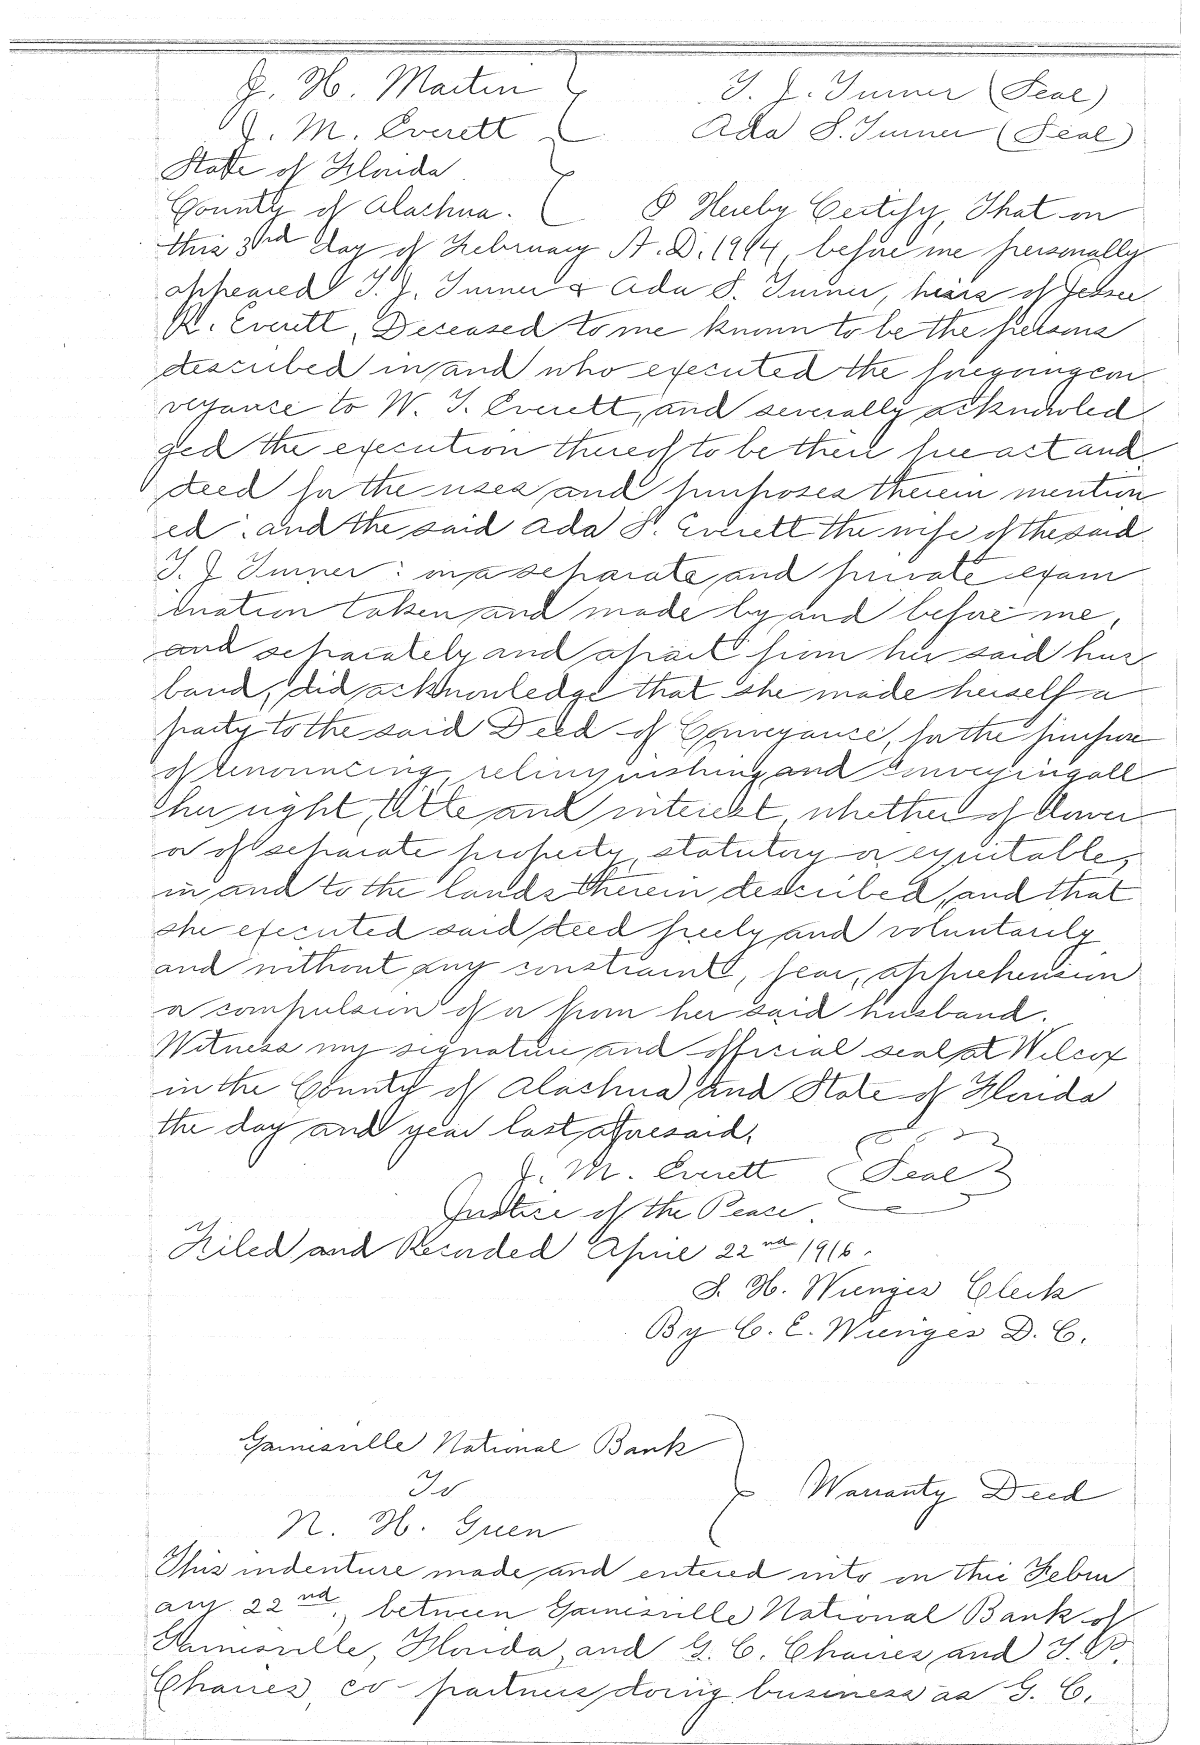 J. H. Martin T. J. Turner (Seal)
J. M. Everett Ada S. Turner (Seal)
State of Florida
County of Alachua. I Hereby Certify, That on
this 3rd day of February A.D. 1914, before me personally
appeared T. J. Turner & Ada S. Turner, heirs of Jessee
R. Everett, Deceased to me known to be the persons
described in and who executed the foregoing con
veyance to W. T. Everett, and severally acknowled
ged the execution thereof to be their free act and
deed for the uses and purposes therein mention
ed: and the said Ada S. Everett the wife of the said
T. J Turner: on a separate and private exam
ination taken and made by and before me,
and separately and apart from her said hus
band, did acknowledge that she made herself a
party to the said Deed of Conveyance, for the purpose
of renouncing, relinquishing and conveying all
her right, title and interest, whether of dower
or of separate property, statutory or equitable,
in and to the lands therein described, and that
she executed said deed freely and voluntarily
and without any constraint, fear, apprehension
or compulsion of or from her said husband.
Witness my signature and official seal at Wilcox
in the County of Alachua and State of Florida
the day and year last aforesaid.
J. M. Everett (Seal)
Justice of the Peace.
Filed and Recorded April 22nd 1916.
S. H. Wienges Clerk
By C. E. Wienges D. C.
Gainesville National Bank
To Warranty Deed
N. H. Green
This indenture made and entered into on this Febru
ary 22nd, between Gainesville National Bank of
Gainesville, Florida, and G. C. Chaires and T. P.
Chaires, co-partners doing business as G. C.